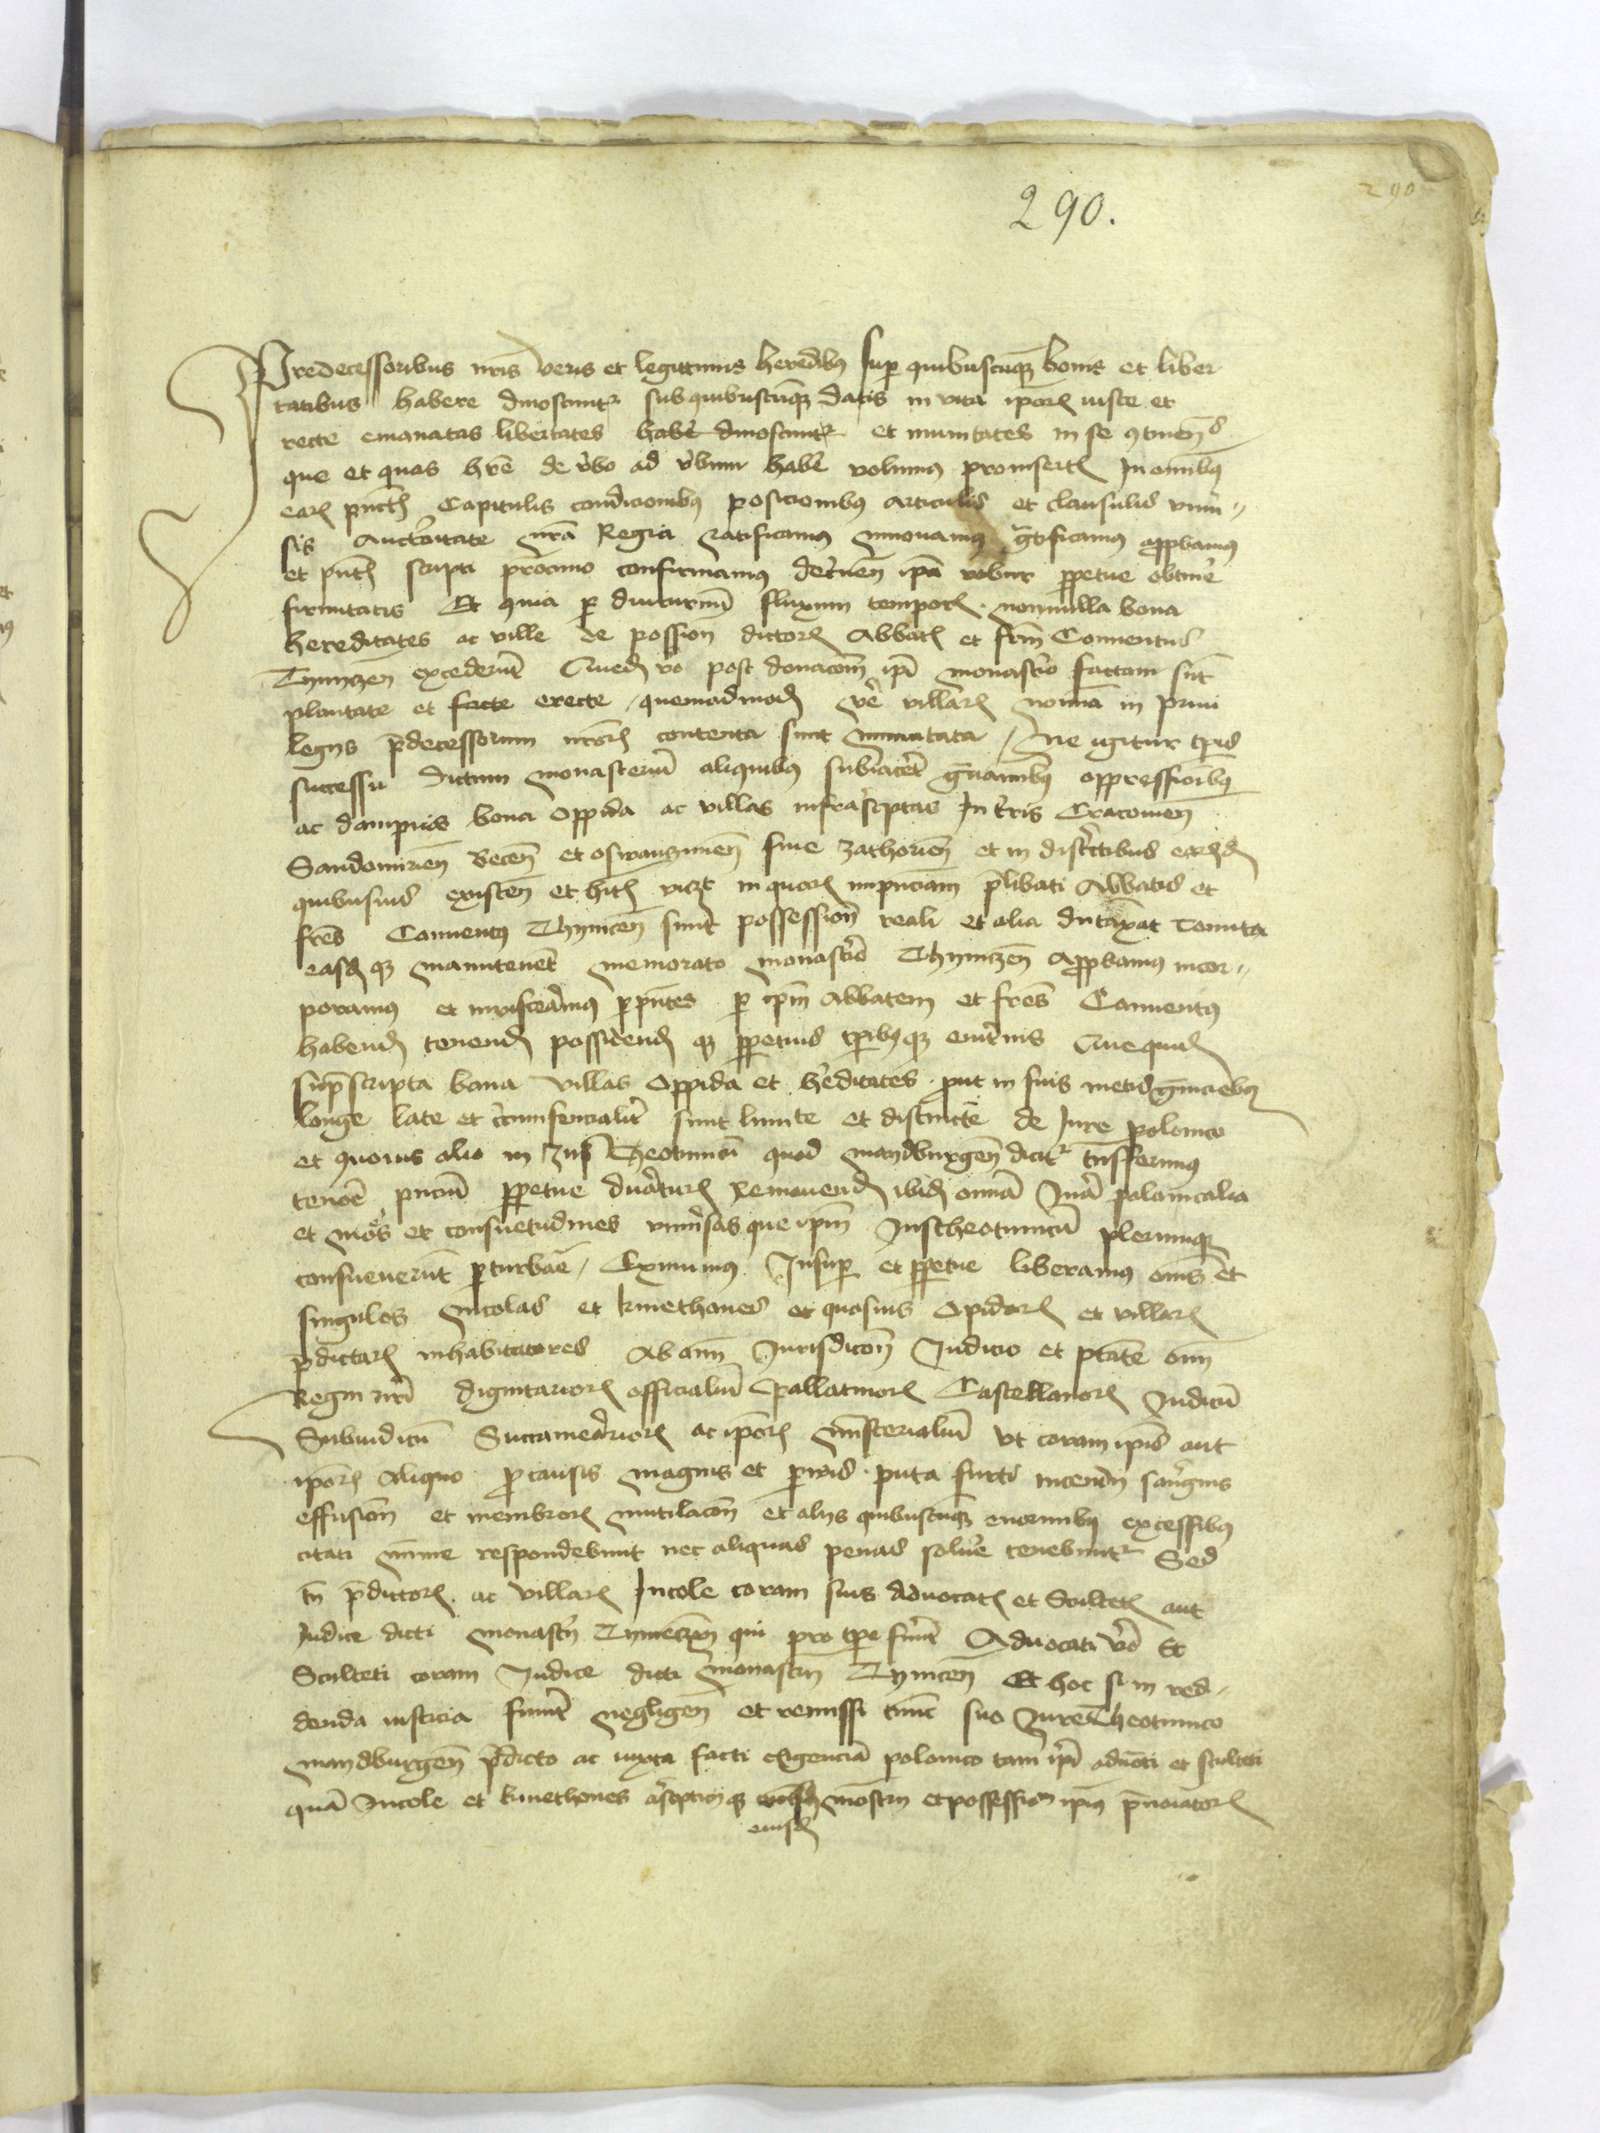 290.
290
Predecessoribus nris veris et legittimis heredibus sup quibuscumqz bonis et liber
tatibus habere dinoscuntr sub quibuscumqz datis in vita iporum iuste et
recte emanatas libertates habere dinoscuntr et munitates in se
que et quas hre de verbo ad verbum habere volumus pro insertis In omnibus
earum punctis Capitulis condicionibus posicionibus articulis et clausulis vniuer
sis Auctoritate nra Regia ratificamus innouamus gratificamus approbamus
et pntis scripti procinio confirmamus decernen ipa robur perpetue obtinere
firmitatis Et quia per diuturnum fluxum temporum nonnulla bona
hereditates ac ville de possion dictorum Abbatis et frm Conuentus
Tynyczen exciderunt Quedam vero post donacom ipi monasterio factam sunt
plantate et facte erecte quemadmodum vere villarum nomina in priui
legys predecessorum nrorum contenta sunt immutata Ne igitur tpis
successu dictum monasterium aliquibus subiaceret grauaminibus oppressionibus
ac dampnis bona oppida ac villas infrascriptas In terris Cracouien
Sandomirien Becen et oswanczimen siue zathorien et in districtibus earundem
quibusuis existen et hitis viczt in quorum pnciam prelibati Abbatis et
fres Conuentus Thynicen sunt possession reali et alia dutaxat tenuta
easdem qz manutenent memorato monasterio Thyniczen Appbamus incor
poramus et inuisceramus per pntes per ipm Abbatem et fres Conuentus
habendum tenendum possidendum qz perpetuis tpribus qz euiternis Que quidem
suprascripta bona villas Oppida et hereditates prout in suis metis
longe late et circumferencialiter sunt limite et distincte de Jure polonico
et quouis alio in Jus Theotunicum quod maydburgen dicitr transferimus
tenore pncium perpetue duraturum Remouendum ibidem omnia Jura polonicalia
et mores et consuetudines vniuersas que ipm Jus theotunicum plerumqz
consueuerunt perturbare Eximimus Insuper et perpetue liberamus omnes et
singulos Incolas et kmethones et quosuis Opidorum et villarum
predictarum inhabitatores Ab omni Jurisdiccon Judicio et ptate omnium
Regni nri dignitariorum officialium Pallatinorum Castellanorum Judicum
Subiudicum Succamerariorum ac iporum ministerialium vt coram ipis aut
iporum aliquo pro causis magnis et paruis puta furti incendy sanguinis
effusion et membrorum mutilacon et alys quibuscumqz enormibus excessibus
citati minime respondebunt nec aliquas penas soluere tenebuntr Sed
tn predictorum ac villarum Incole coram suis Aduocatis et Scultetis aut
Judice dicti monastery Tyniczen qui pro tpe fuerint Aduocati vero Et
Sculteti coram Judice dicti monastery Tynicen Et hoc si in red
denda iusticia fuerint negligen et remissi tunc suo Jure Theotunico
maydburgen predicto ac iuxta facti exigenciam polonico tam ipi aduocati et sculteti
quam Incole et kmethones ascripticii qz mostery et possession ipius prenoiatorum
eiusdem